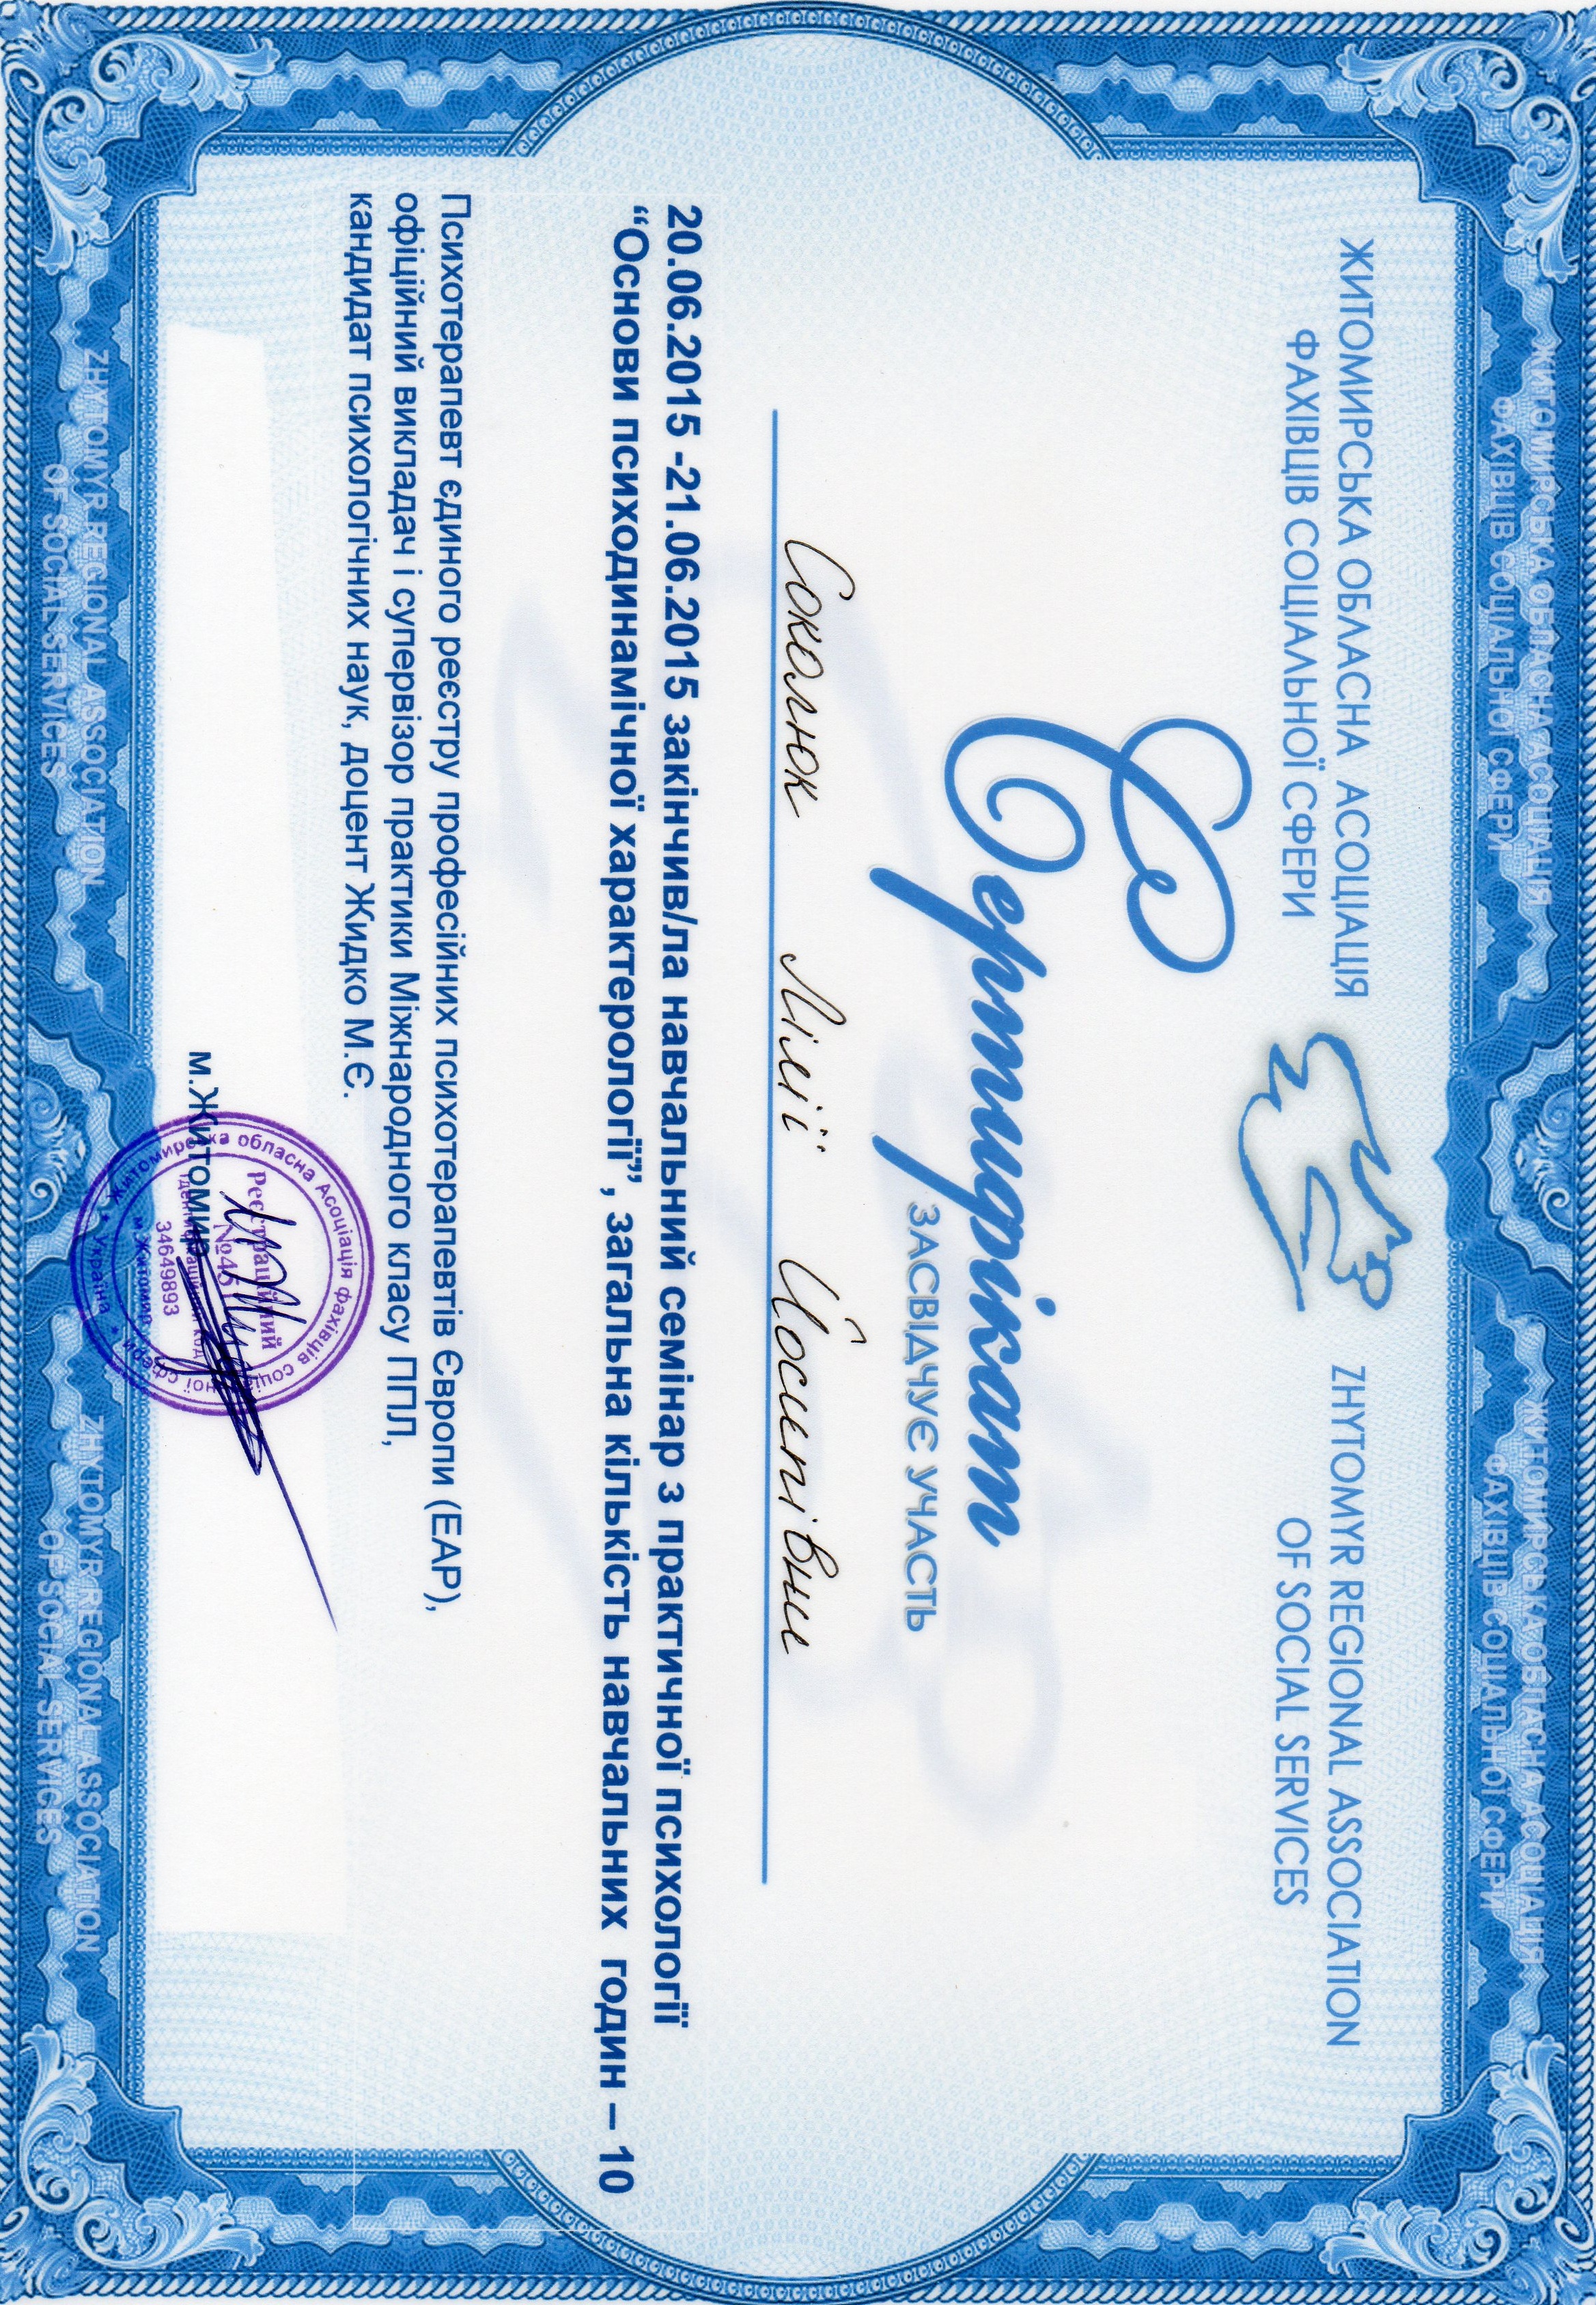 ЖИТОМИРСЬКА ОБЛАСНА АСОЦІАЦІЯ
ФАХІВЦІВ СОЦІАЛЬНОЇ СФЕРИ
ЖИТОМИРСЬКА ОБЛАСНА АСОЦІАЦІЯ
ФАХІВЦІВ СОЦІАЛЬНОЇ СФЕРИ
ЖИТОМИРСЬКА ОБЛАСНА АСОЦІАЦІЯ
ФАХІВЦІВ СОЦІАЛЬНОЇ СФЕРИ
ZHYTOMYR REGIONAL ASSOCIATION
OF SOCIAL SERVICES
Сертифікат
ЗАСВІДЧУЄ УЧАСТЬ
Соколюк Лілії Йосипівни
20.06.2015 -21.06.2015 закінчив/ла навчальний семінар з практичної психології
“Основи психодинамічної характерології”, загальна кількість навчальних годин – 10
Психотерапевт єдиного реєстру професійних психотерапевтів Європи (ЕАР),
офіційний викладач і супервізор практики Міжнародного класу ППЛ,
кандидат психологічних наук, доцент Жидко М.Є.
м.Житомир
Житомирська обласна Асоціація фахівців соціальної сфери * Україна *
Реєстраційний
№451
ідентифікаційний код
34649893
м.Житомир
ZHYTOMYR REGIONAL ASSOCIATION
OF SOCIAL SERVICES
ZHYTOMYR REGIONAL ASSOCIATION
OF SOCIAL SERVICES